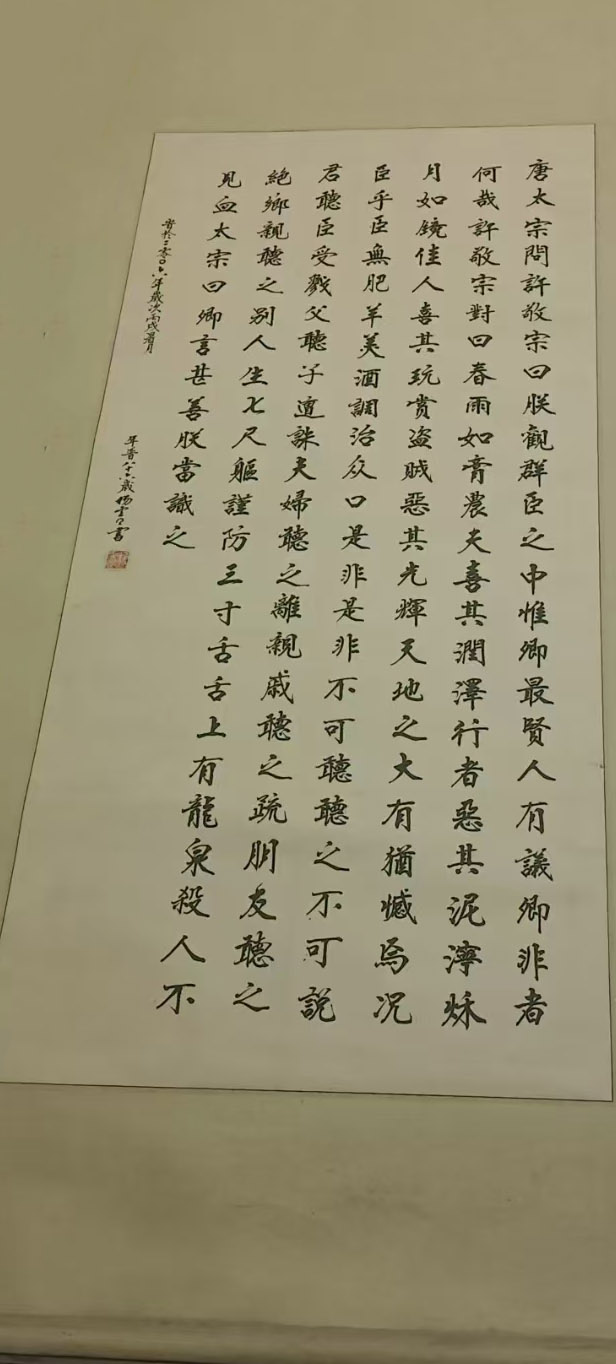 唐太宗問許敬宗曰朕觀群臣之中惟卿最賢人有議卿非者
何哉許敬宗對曰春雨如膏農夫喜其潤澤行者惡其泥濘秋
月如鏡佳人喜其玩賞盗賊惡其光輝天地之大有猶憾焉况
臣乎臣無肥羊美酒調治众口是非是非不可聽聽之不可説
君聽臣受戮父聽子遭誅夫婦聽之離親戚聽之疏朋友聽之
絶鄉親聽之别人生七尺軀謹防三寸舌舌上有龍泉殺人不
見血太宗曰卿言甚善朕當識之
書於二零零六年歲次丙戌暑月
歲楊書